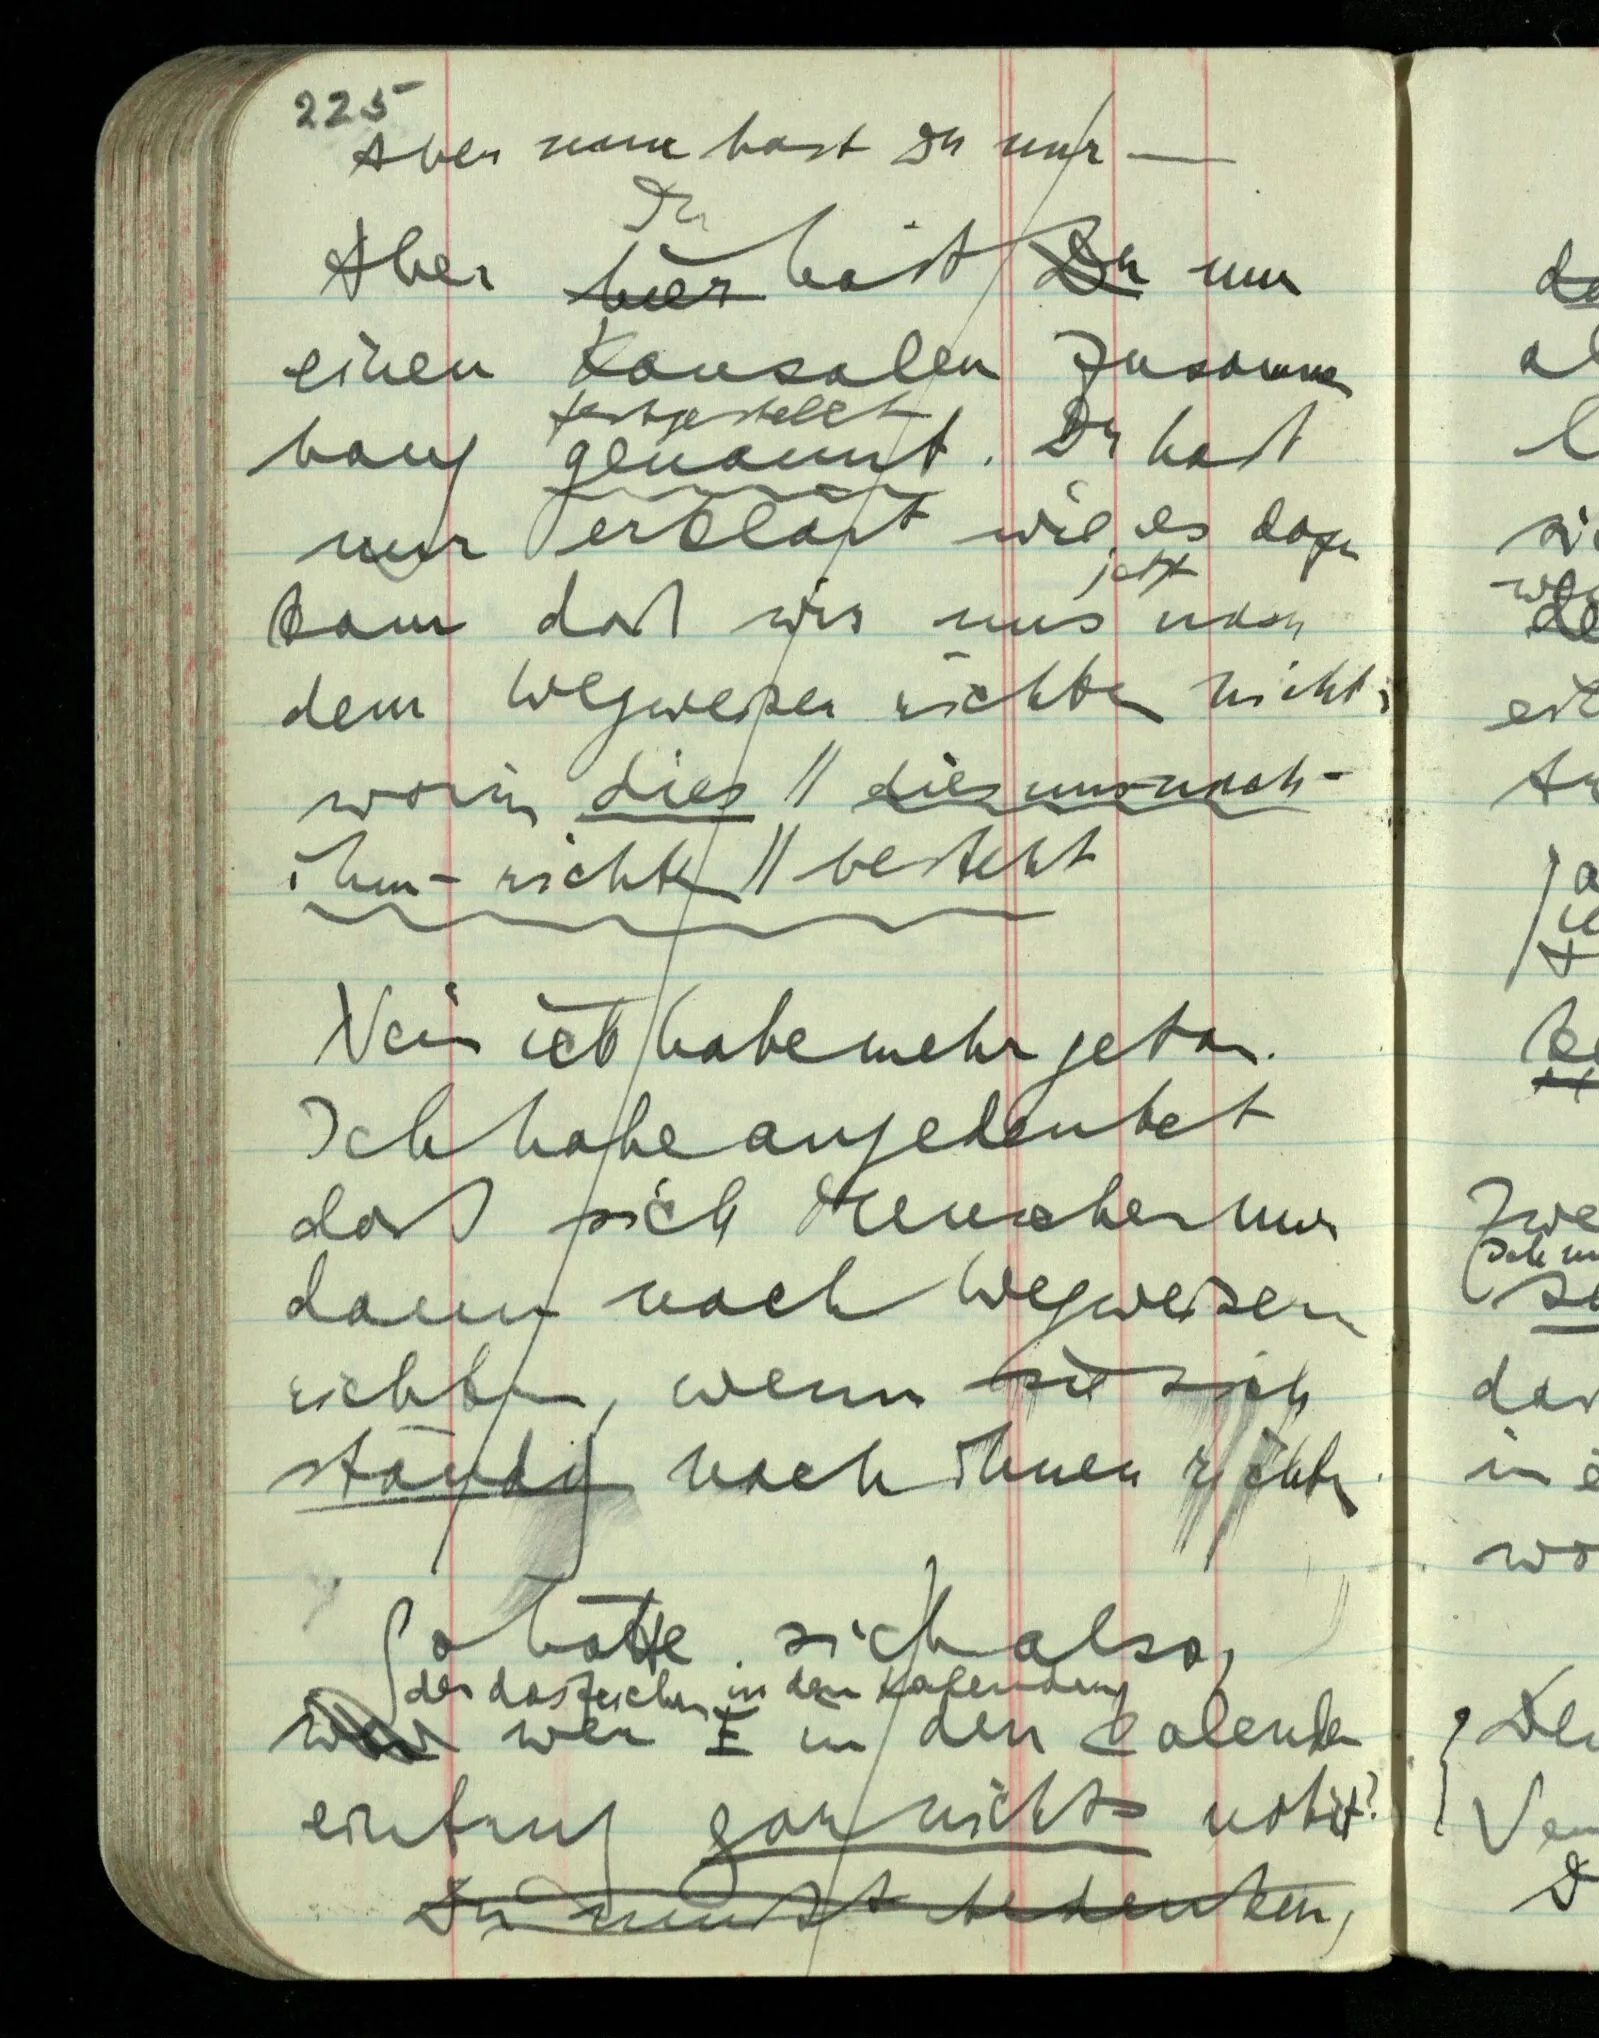 225
Aber nun hast Du nur —
Du
Aber hier hast Du nur
einen kausalen Zusamme
hang genannt. Du hast
festgestellt
nur erklärt wie es dazu
kam daß wir uns nach
jetzt
dem Wegweiser richten nicht,
worin dies // dies-uns-nach-
ihm-richten // besteht
Nein ich habe mehr getan.
Ich habe angedeutet
daß sich Menschen nur
dann nach Wegweisern
richten, wenn sie sich
ständig nach ihnen richten.
So hätte sich also,
der das Zeichen in den Kalender
wer E in den Calender
eintrug gar nichts notiert?
Du mußt bedenken,
da
al
si
de
Zwe
Ich
das
in e
wo